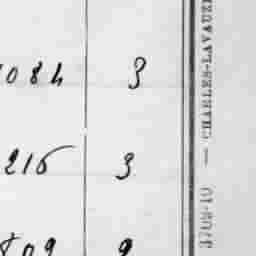 1084 3
216 3
809 9
3709-10 — CHARLES-LAVAUZE